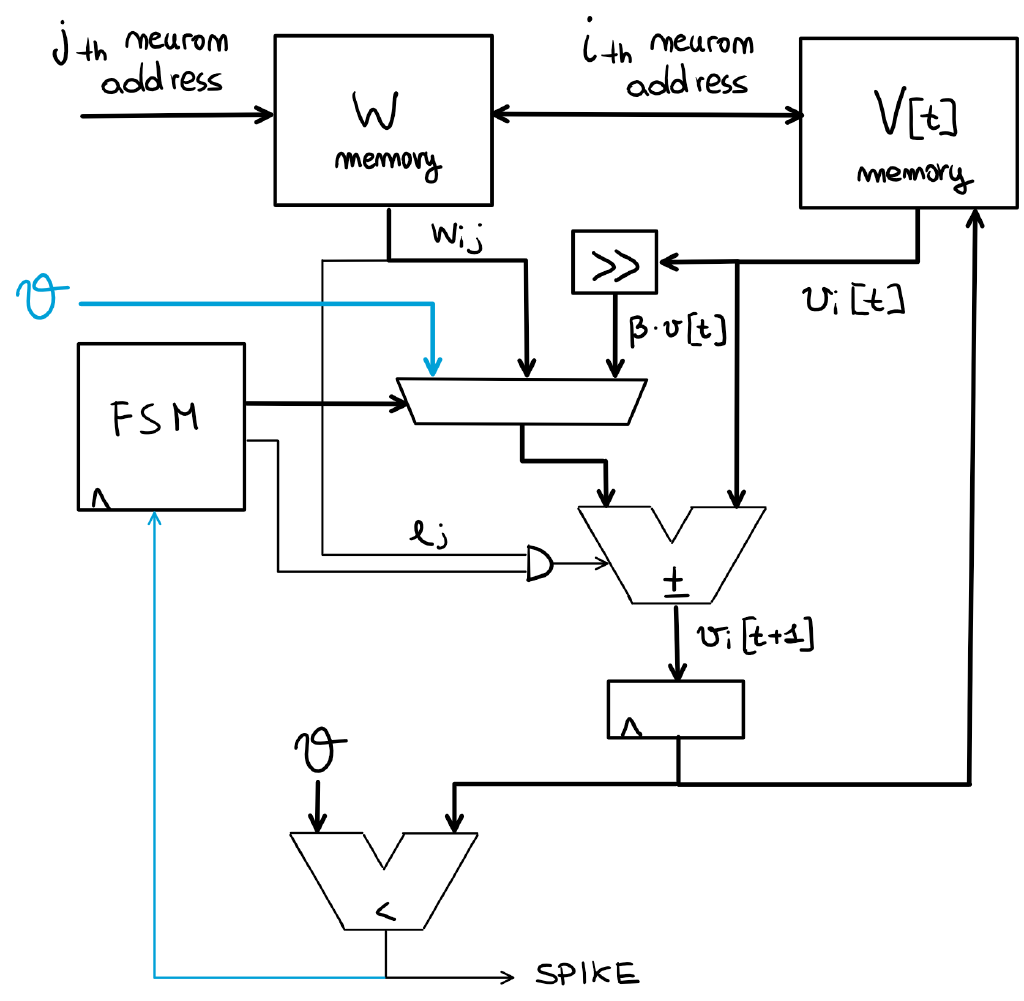 j-th neuron
address
W
memory
i-th neuron
address
V[t]
memory
wij
>>
vi[t]
β·v[t]
ϑ
FSM
ej
±
vi[t+1]
ϑ
<
SPIKE